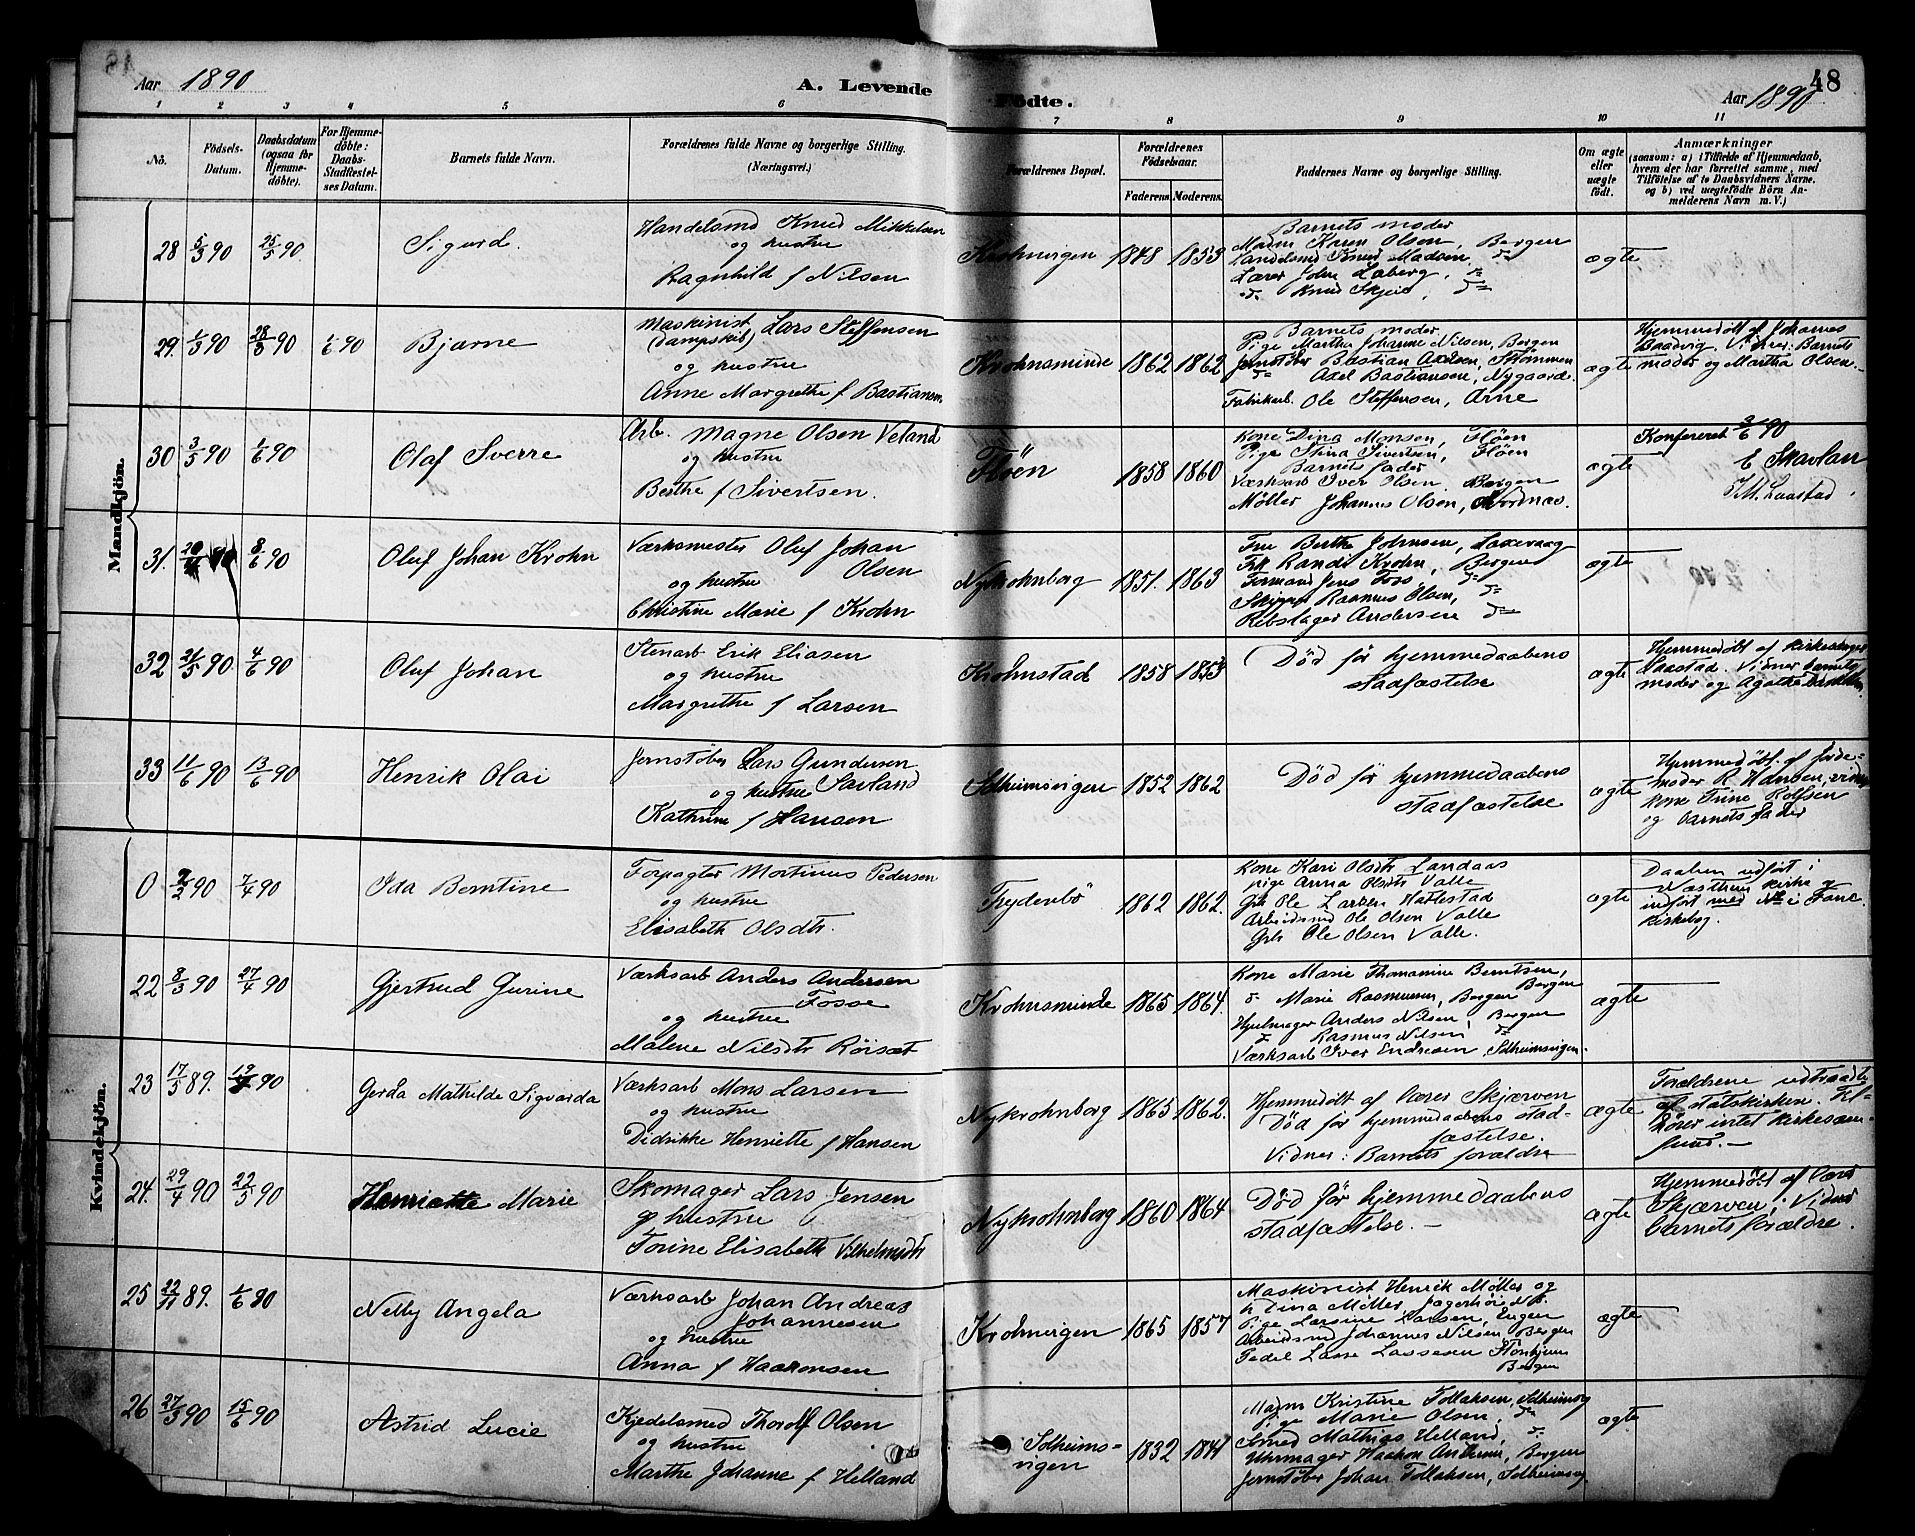 Aar 1890
A. Levende Fødte.
48
Aar 1890
1 2 3 4 5 6 7 8 9 10 11
No.
Fødsels-
Datum.
Daabsdatum
(ogsaa for
Hjemme-
døbte).
For Hjemme-
døbte:
Daabs-
Stadfæstel-
ses Datum.
Barnets fulde Navn.
Forældrenes fulde Navne og borgerlige Stilling.
(Næringsvei.)
Forældrenes Bopæl.
Forældrenes
Fødselsaar.
Faderens. Moderens.
Faddernes Navne og borgerlige Stilling.
Om ægte
eller
uægte
født.
Anmærkninger
(saasom: a) i Tilfælde af Hjemmedaab,
hvem der har forrettet samme, med
Tilføielse af to Daabsvidners Navne,
og b) ved uægtefødte Børn An-
melderens Navn m. V.)
Mandkjön.
28 5/3 90 25/5 90
Sigurd.
Handelsmd Knud Mikkelsen
og hustru
Ragnhild f Nilsen
Krohnvigen 1848 1853
Barnets moder
Madm Karen Olsen, Bergen
Handelsmd Knud Madsen, do
Lærer John Laberg, do
do Knud Skjeie, do
ægte
29. 1/3 90 28/3 90 1/6 90
Bjarne
Maskinist (dampskib) Lars Steffensen
og hustru
Anne Margrethe f Bastiansen
Krohnsminde 1862 1862
Barnets moder
Pige Martha Johanne Nilsen, Bergen
Jernstøber Bastian Axelsen, Strømmen
do Axel Bastiansen, Nygaard.
Fabrikarb. Ole Steffensen, Arne
ægte
Hjemmedøbt af Johannes
Vidner: Barnets
moder og Martha Olsen.
30 3/5 90 1/6 90
Olaf Sverre
Arb. Magne Olsen Veland
og hustru
Berthe f Sivertsen.
Fløen 1858 1860
Kone Dina Monsen, Fløen
Pige Stina Sivertsen, Fløen
Barnets fader
Værksarb Iver Olsen. Bergen
Møller Johannes Olsen, Nordnæs.
ægte
Konfereret 3/6 90
E Skavlan
I M. Laastad.
31. 90 8/6 90
Oluf Johan Krohn
Værksmester Oluf Johan
Olsen
og hustru
Christine Marie f Krohn
Nykrohnborg 1851. 1863
Fru Berthe Johnsen, Laxevaag
Frk Randi Krohn, Bergen
Formand Jens Foss, do
Skipper Rasmus Olsen, do
Rebslager Andersen do
ægte
32 21/5 90 4/6 90
Oluf Johan
Stenarb Erik Eliasen
og hustru
Margrethe f Larsen
Krohnstad 1858 1853
Død før hjemmedaabens
stadfæstelse
ægte
Hjemmedøbt af kirkesanger
Laastad. Vidner barnets
moder og Agathe
33 11/6 90 13/6 90
Henrik Olai
Jernstøber Lars Gundersen
og hustru Sævland
Kathrine f Hansen
Solheimsvigen 1852 1862
Død før hjemmedaabens
stadfæstelse
ægte
Hjemmedøbt af jorde-
moder R Hansen, vidner
kone Trine Rolfsen
og barnets fader
Kvindekjön.
0 2/2 90 7/4 90
Ida Berntine
Forpagter Mortinus Pedersen
og hustru
Elisabeth Olsdtr.
Frydenbø 1862 1862.
Kone Kari Olsdtr Landaas
pige Anna Olsdtr Valle
Grb Ole Larsen Hattestad
Arbeidsmd Ole Olsen Valle
Grb Ole Olsen Valle.
ægte
Daaben udført i
kirke og
indført med No i Fane
kirkebog.
22 8/3 90 27/4 90
Gjertrud Gurine
Værksarb Anders Andersen
Fosse
og hustru
Malene Nilsdtr Röisæt
Krohnsminde 1865 1864.
Kone Marie Thomamine Berntsen,
Bergen
do Marie Rasmussen, Bergen
Hjulmager Anders Nilsen, Bergen
do Rasmus Nilsen, do
Værksarb Iver Endresen, Solheimsvigen.
ægte
23 17/5 89. 90
Gerda Mathilde Sigvarda
Værksarb Mons Larsen
og hustru
Didrikke Henriette f Hansen
Nykrohnborg 1865 1862.
Hjemmedøbt af lærer Skjærven
Død før hjemmedaabens stad-
fæstelse.
Vidner: Barnets forældre
ægte
Forældrene udtraadte
af statskirken. Til-
hører intet kirkesam-
fund.
24. 29/4 90 22/5 90
Henriette Marie
Skomager Lars Jensen
og hustru
Torine Elisabeth Vilhelmsdtr
Nykrohnborg 1860 1864
Død før hjemmedaabens
stadfæstelse.
ægte
Hjemmedøbt af lærer
Skjærven; Vidner
barnets forældre.
25 22/11 89. 1/6 90
Nelly Angela
Værksarb Johan Andreas
Johannesen
og hustru
Anna f Haaronsen
Krohnvigen 1865 1857
Maskinist Henrik Møller og
h Dina Møller,
Pige Larsine Larsen, Engen
Arbeidsmd Johannes Nilsen, Bergen
Pedel Lasse Lassesen
Bergen
ægte
26 27/3 90 15/6 90
Astrid Lucie
Kjedelsmed Thorolf Olsen
og hustru
Marthe Johanne f Helland
Solheims-
vigen 1832 1841
Madm Kristine Tollaksen, Solheimsvig
Pige Marie Olsen, do
Smed Mathias Helland, do
Uhrmager Haakon Andersen, Bergen
Jernstøber Johan Tollaksen, Solheimsvig
ægte